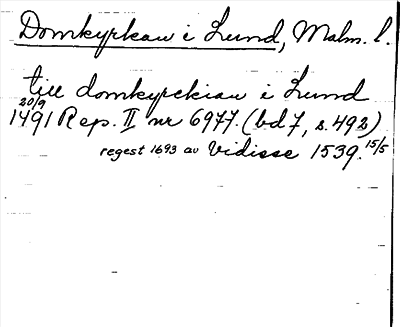 Domkyrkan i Lund, Malm. l.
till domkyrckian i Lund
20/9
1491 Rep. II nr 6977. (bd 7, s. 492)
regest 1693 av Vidisse 1539. 15/5